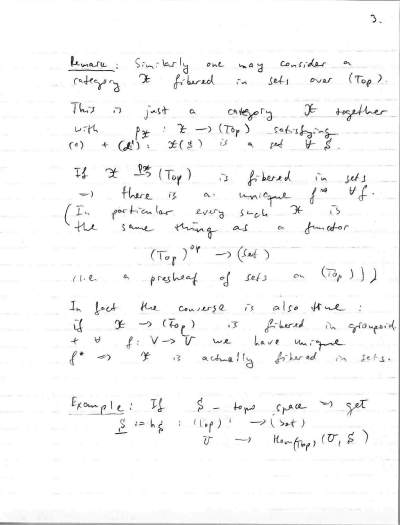 3.
Remark: Similarly one may consider a
category X fibered in sets over (Top).
This is just a category X together
with p_X : X → (Top) satisfying
(a) + (b'): X(S) is a set ∀ S.
If X →^{p_X} (Top) is fibered in sets
⇒ there is a unique f* ∀ f.
(In particular every such X is
the same thing as a functor
(Top)^op → (Set)
(i.e. a presheaf of sets on (Top)))
In fact the converse is also true:
if X → (Top) is fibered in groupoid
+ ∀ f: V → U we have unique
f* ⇒ X is actually fibered in sets.
Example: If S - topo space ⇒ get
S := h_S : (Top)° → (Set)
U → Hom_(Top)(U, S)